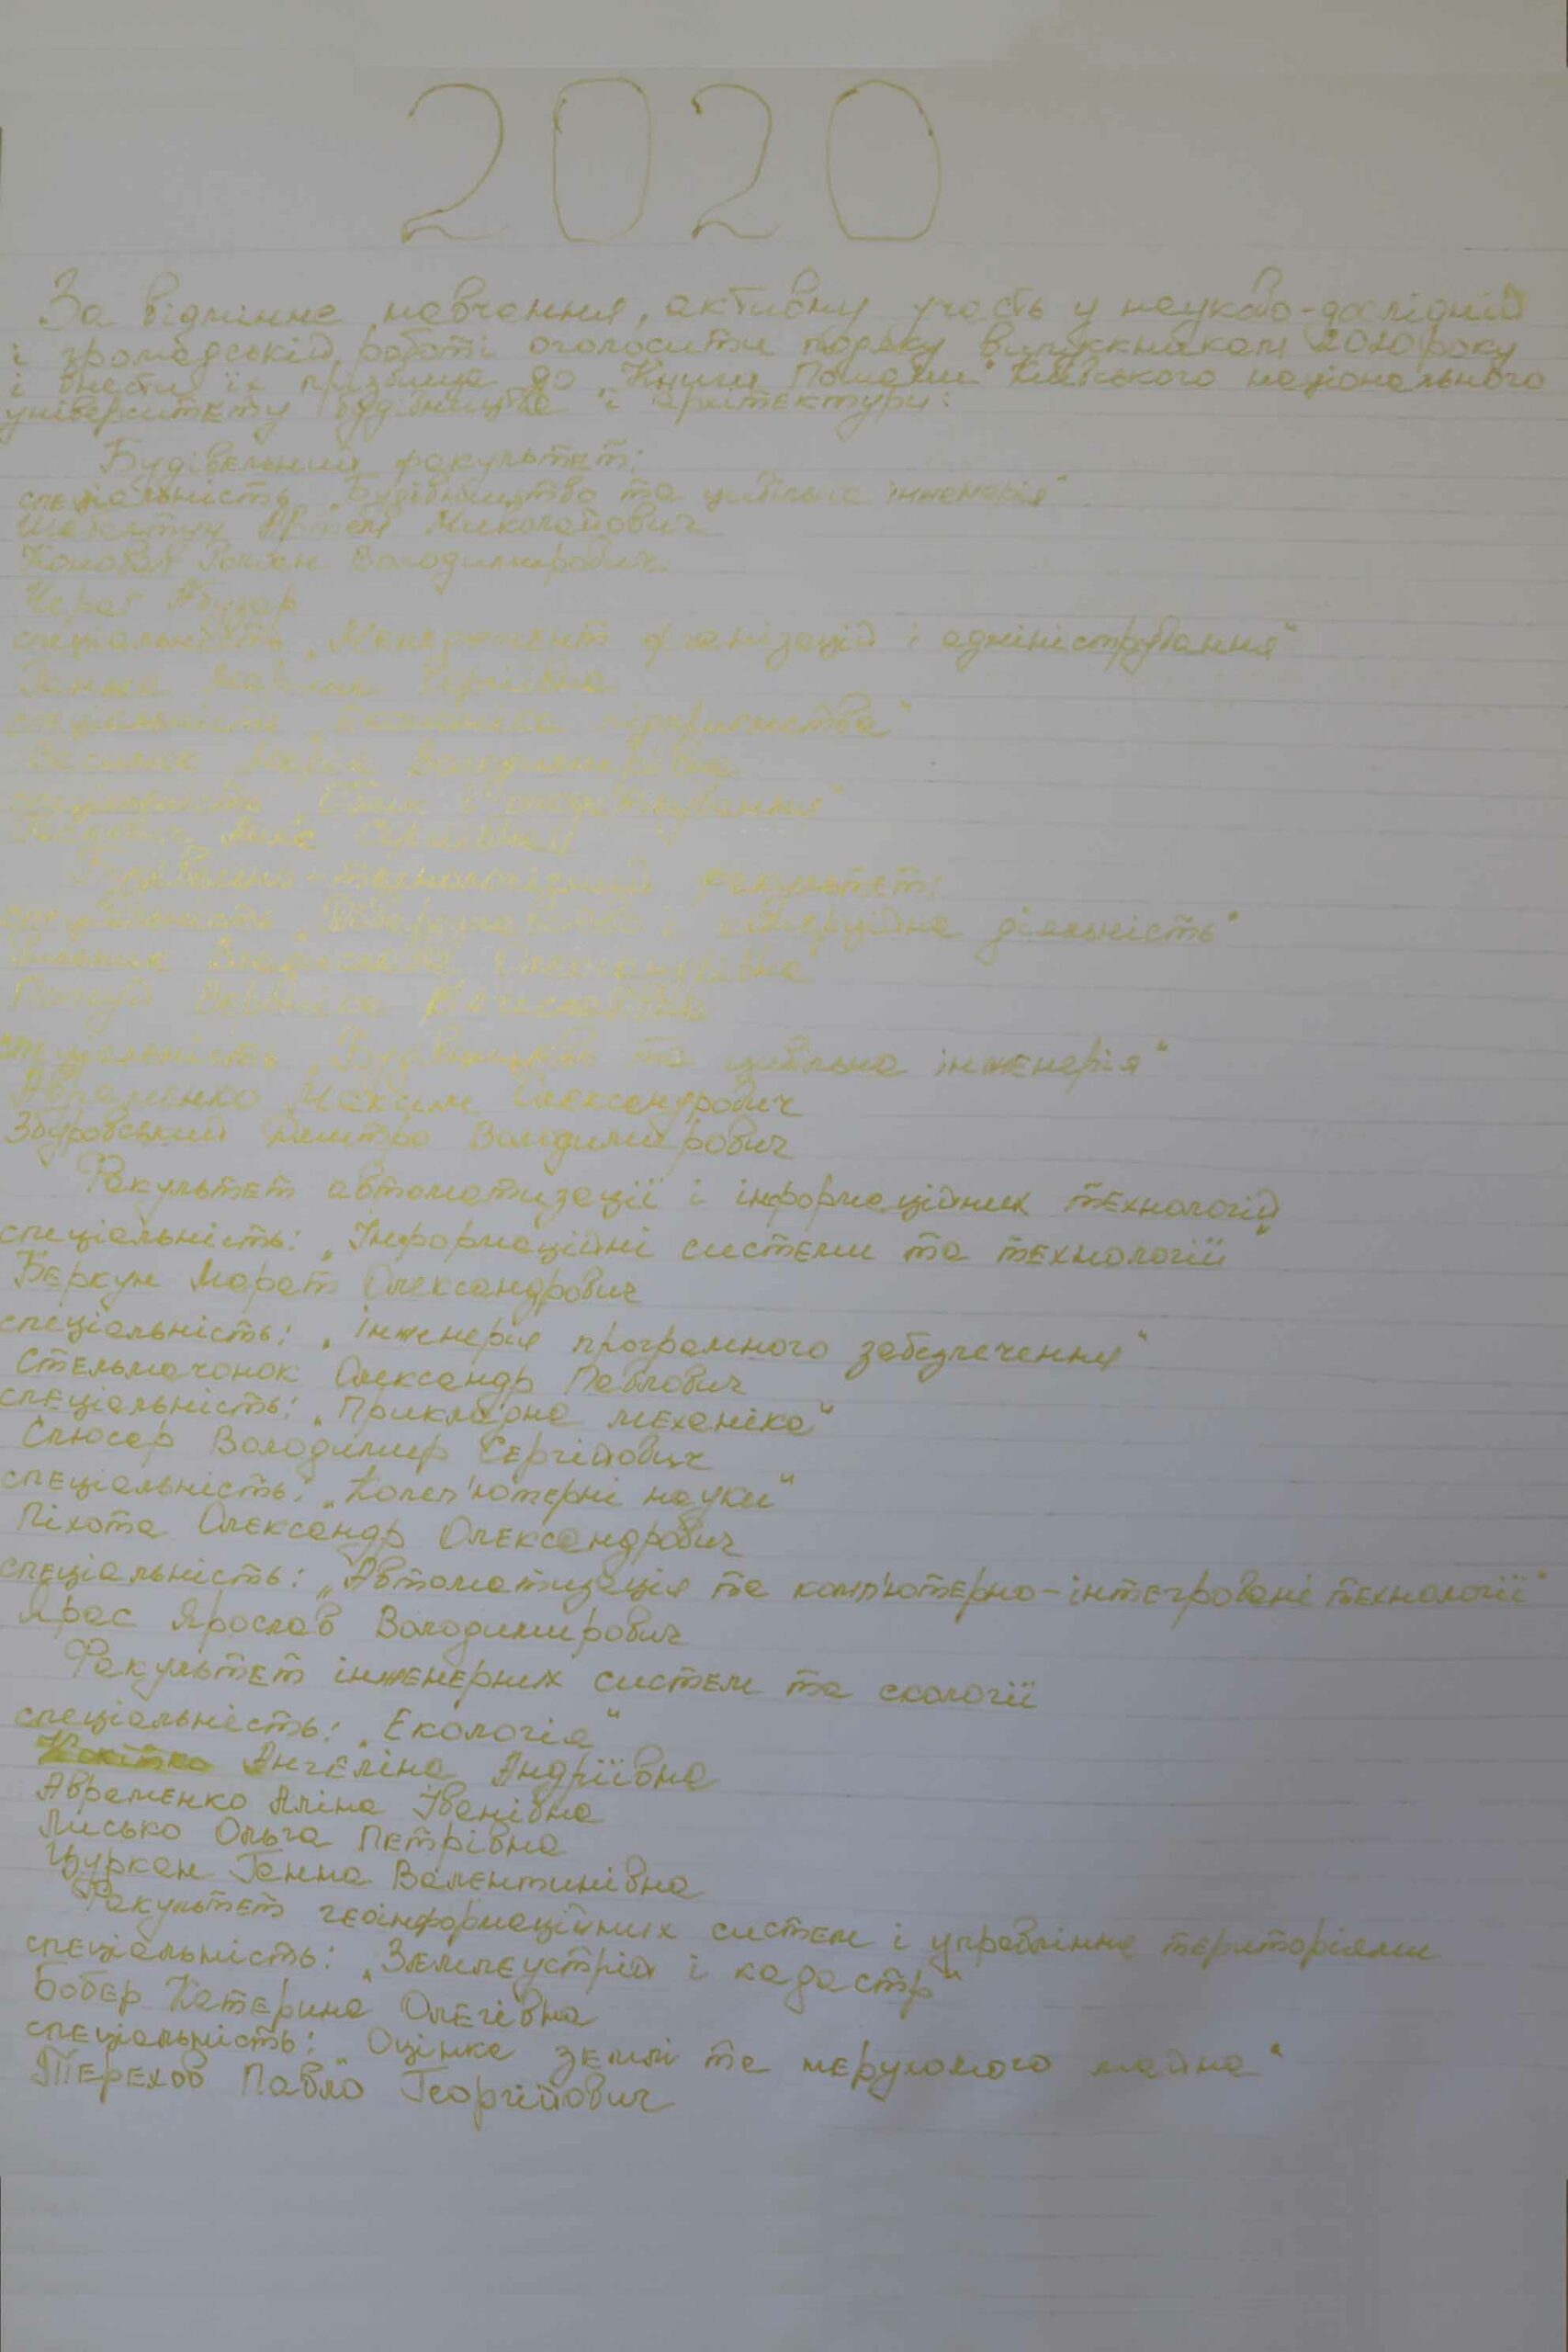 2020
За відмінне навчання, активну участь у науково-дослідній
і громадській роботі оголосити подяку випускникам 2020 року
і внести їх прізвища до „Книги Пошани" Київського національного
університету будівництва і архітектури:
Будівельний факультет:
спеціальність „Будівництво та цивільна інженерія"
Артем Миколайович
Коновал Роман Володимирович
спеціальність „Менеджмент організацій і адміністрування"
Сергіївна
спеціальність „Економіка підприємства"
Марія Володимирівна
спеціальність „Облік і оподаткування"
Сергіївна
Будівельно-технологічний факультет:
спеціальність „Товарознавство і комерційна діяльність"
Владислава Олександрівна
Вероніка
спеціальність „Будівництво та цивільна інженерія"
Авраменко Максим Олександрович
Збуровський Дмитро Володимирович
Факультет автоматизації і інформаційних технологій
спеціальність: „Інформаційні системи та технології"
Беркун Марат Олександрович
спеціальність: „Інженерія програмного забезпечення"
Стельмачонок Олександр Павлович
спеціальність: „Прикладна механіка"
Слюсар Володимир Сергійович
спеціальність: „Комп'ютерні науки"
Піхота Олександр Олександрович
спеціальність: „Автоматизація та комп'ютерно-інтегровані технології"
Ярас Ярослав Володимирович
Факультет інженерних систем та екології
спеціальність: „Екологія"
Ангеліна Андріївна
Авраменко Аліна Іванівна
Лисько Ольга Петрівна
Цуркан Ганна Валентинівна
Факультет геоінформаційних систем і управління територіями
спеціальність: „Землеустрій і кадастр"
Бобер Катерина Олегівна
спеціальність: „Оцінка землі та нерухомого майна"
Терехов Павло Георгійович